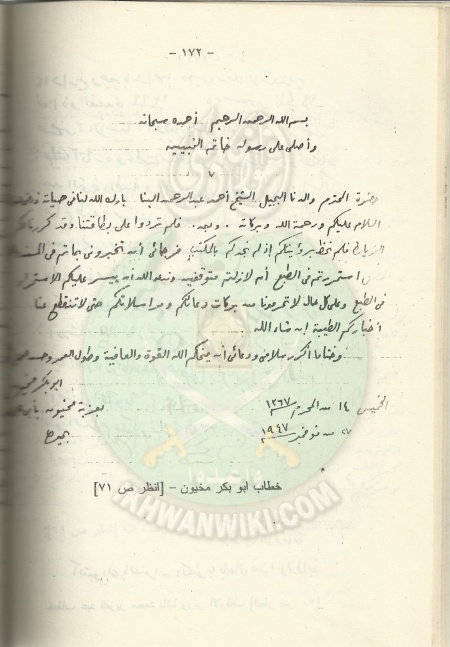 - ١٧٢ -
بسم الله الرحمن الرحيم أحمده سبحانه
وأصلي على رسوله خاتم النبيين
حضرة المحترم والدنا البجيل الشيخ أحمد عبد الرحمن البنا بارك الله لنا في حياته
السلام عليكم ورحمة الله وبركاته . وبعد . فلم تردوا على بطاقتنا وقد كررنا
الزيارة فلم نحظ برؤيتكم إذ لم نجدكم بالمكتب فرجائي أن تخبروني بما تم في
استمررتم في الطبع أم لازلتم متوقفين ونسأل الله أن ييسر عليكم الاستمرار
في الطبع وعلى كل حال لا تحرمونا من بركات دعائكم ومراسلاتكم حتى لا تنقطع عنا
أخباركم الطيبة إن شاء الله .
وختاما أكرر سلامي ودعائي أن يمنحكم الله القوة والعافية وطول العمر
ابو بكر مخيون
الخميس ١٤ من المحرم ١٣٦٧ عزبة مخيون
٢٧ من نوفمبر ١٩٤٧ بحيرة
خطاب ابو بكر مخيون - [انظر ص ٧١]
وأعدوا
IKHWANWIKI.COM